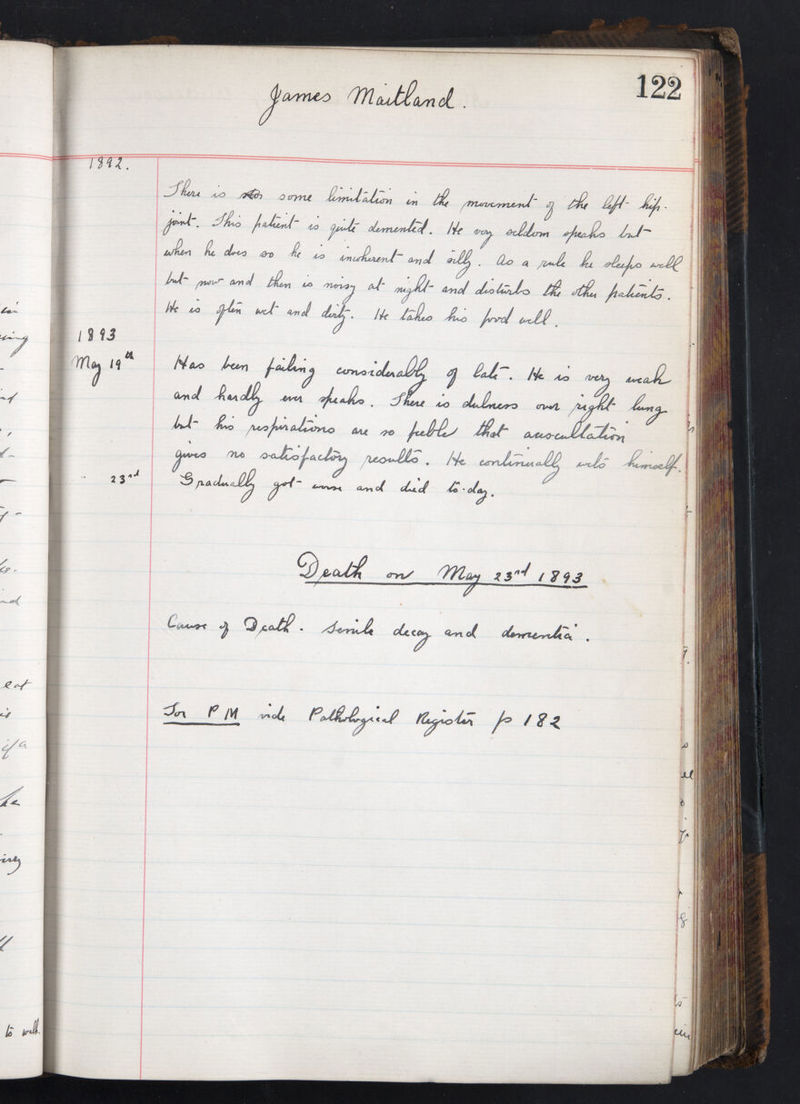 122
James Maitland.
1892.
There is some limitation in the movement of the left hip-
joint. This patient is quite demented. He very seldom speaks but
when he does so he is incoherent and silly. As a rule he sleeps well
but now and then is noisy at night and disturbs the other patients.
He is often wet and dirty. He takes his food well.
1893
May 19th Has been failing considerably of late. He is very weak
and hardly ever speaks. There is dulness over right lung
but his respirations are so feeble that auscultation
gives no satisfactory results. He continually wets himself.
23rd Gradually got worse and died to-day.
Death on May 23rd 1893
Cause of Death. Senile decay and dementia.
For P M vide Pathological Register p 182
to walk